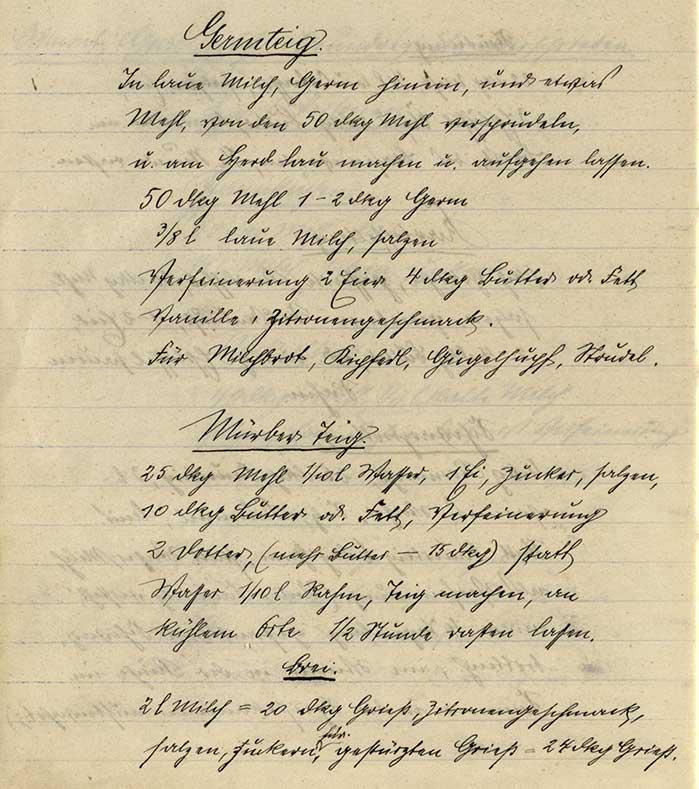 Germteig.
In laue Milch, Germ hinein, und etwas
Mehl, von den 50 dkg Mehl versprudeln,
u. am Herd lau machen u. aufgehen lassen.
50 dkg Mehl 1-2 dkg Germ
3/8 l laue Milch, salzen
Verfeinerung 2 Eier 4 dkg Butter od. Fett
Vanille, Zitronengeschmack.
Für Milchbrot, Kipferl, Gugelhupf, Strudel.
Mürber Teig.
25 dkg Mehl 1/10 l Wasser, 1 Ei, Zucker, salzen,
10 dkg Butter od. Fett, Verfeinerung
2 Dotter, (mehr Butter – 15 dkg) statt
Wasser 1/10 l Rahm, Teig machen, an
kühlem Orte 1/2 Stunde rasten lassen.
Brei.
2 l Milch = 20 dkg Grieß, Zitronengeschmack,
salzen, zuckern, für gestürzten Grieß = 24 dkg Grieß.